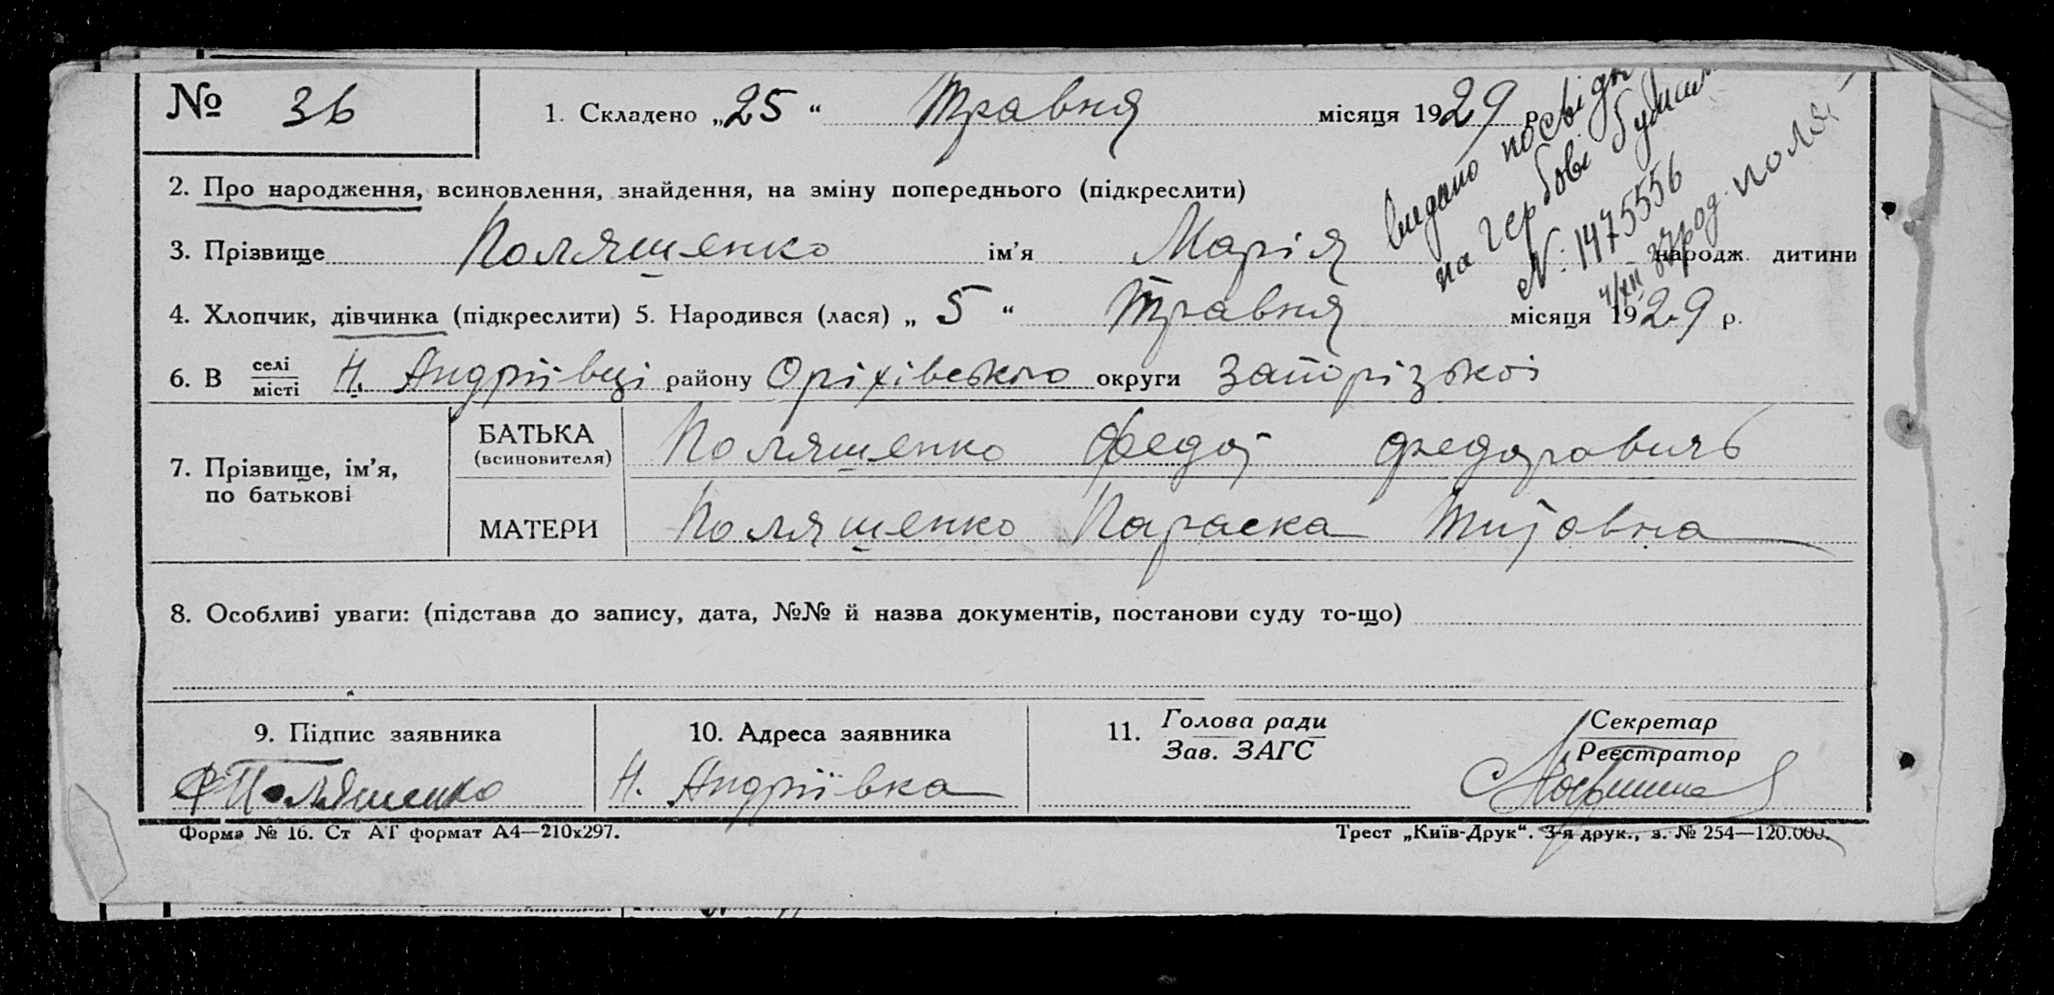 № 36
1. Складено „25“ Травня місяця 1929 р.
видано посвідк
на гербові
N: 1475556
4/XII 37 род. поля
2. Про народження, всиновлення, знайдення, на зміну попереднього (підкреслити)
3. Прізвище Поляшенко ім’я Марія народж. дитини
4. Хлопчик, дівчинка (підкреслити) 5. Народився (лася) „5“ Травня місяця 1929 р.
6. В селі місті Н. Андріївці району Оріхівського округи Запорізької
7. Прізвище, ім’я, по батькові
БАТЬКА (всиновителя) Поляшенко Федор Федоровичь
МАТЕРИ Поляшенко Параска Титовна
8. Особливі уваги: (підстава до запису, дата, №№ й назва документів, постанови суду то-що)
9. Підпис заявника
10. Адреса заявника
11. Голова ради Зав. ЗАГС
Секретар Реєстратор
Ф Поляшенко
Н. Андріївка
Форма № 16. Ст АТ формат А4—210х297.
Трест „Київ-Друк“. 3-я друк., з. № 254—120.000.